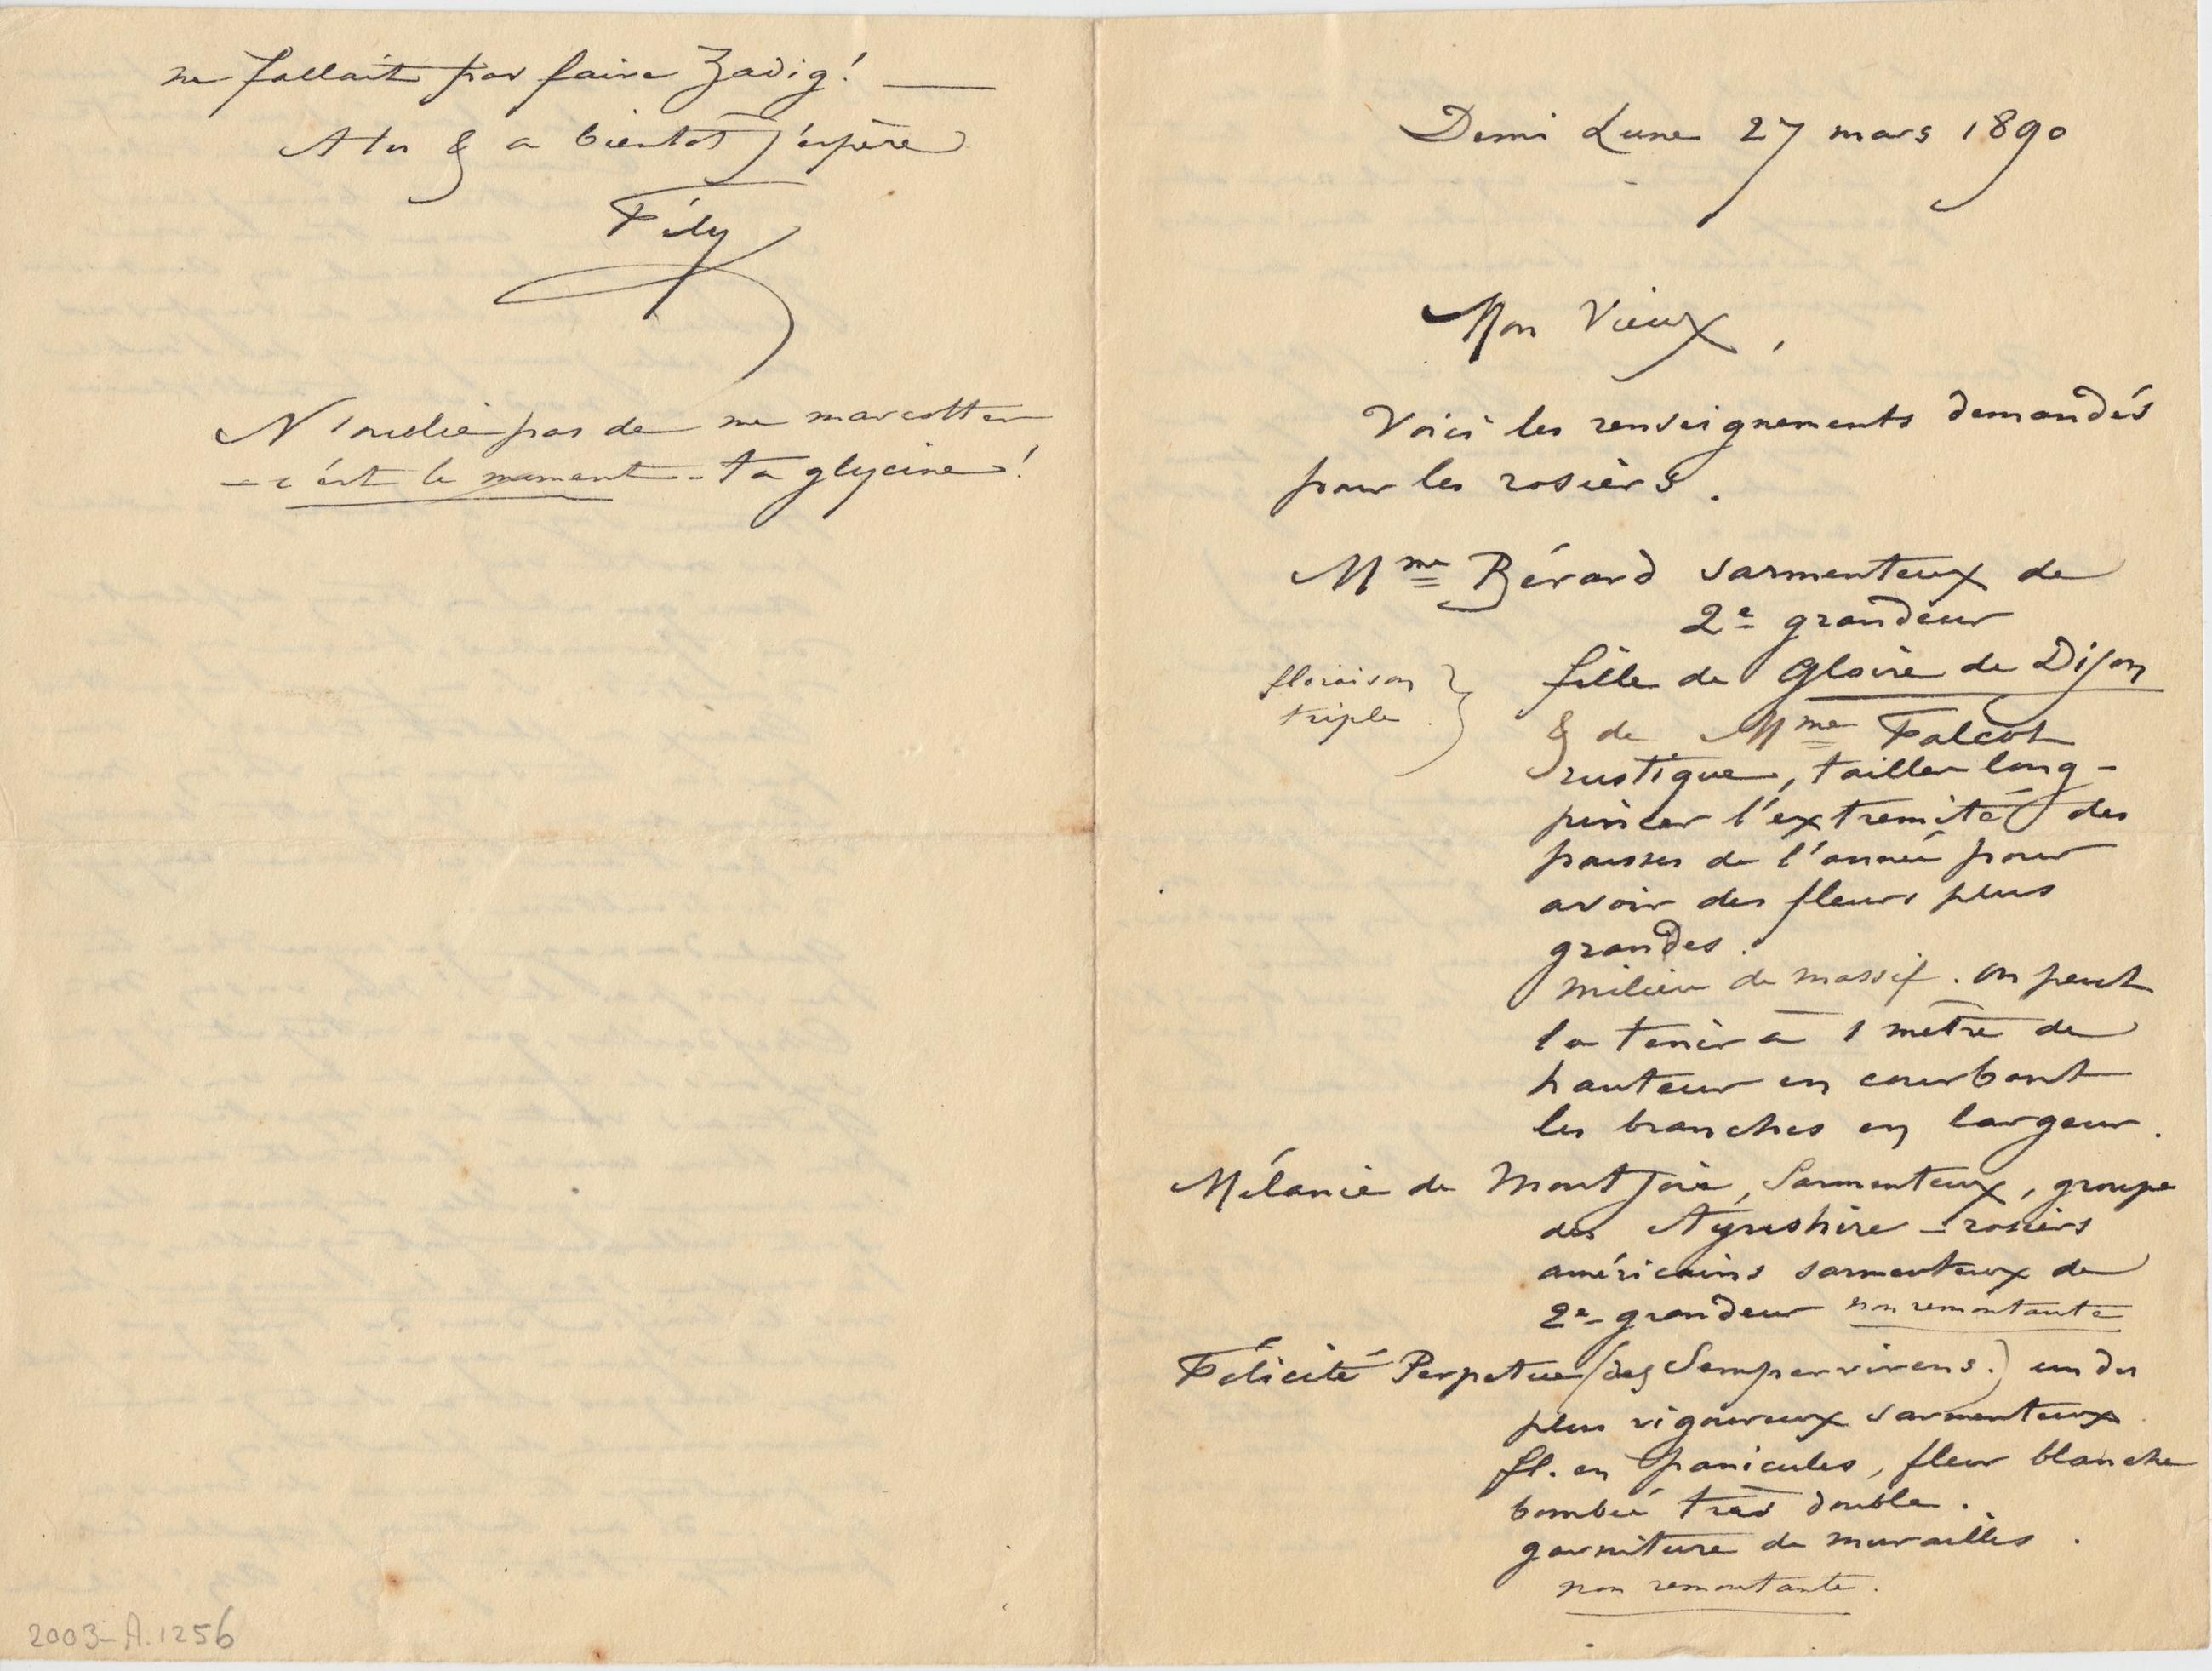 ne fallait pas faire Zadig! —
A toi & a bientôt j'espère
Fély
N'oublie pas de me marcotter
— c'est le moment — ta glycine!
2003-A.1256
Demi Lune 27 mars 1890
Mon Vieux,
Voici les renseignements demandés
pour les rosiers.
Mme Bérard sarmenteux de
2e grandeur
floraison
triple
fille de Gloire de Dijon
& de Mme Falcot
rustique, tailler long -
pincer l'extremité des
pousses de l'année pour
avoir des fleurs plus
grandes.
milieu de massif. on peut
la tenir à 1 mètre de
hauteur en courbant
les branches en largeur.
Mélanie de Montjoie, Sarmenteux, groupe
des Ayrshire — rosiers
américains sarmenteux de
2e grandeur non remontante
Félicité Perpetue (des Sempervirens.) un des
plus vigoureux sarmenteux
fl. en panicules, fleur blanche
bombée très double.
garniture de murailles.
non remontante.